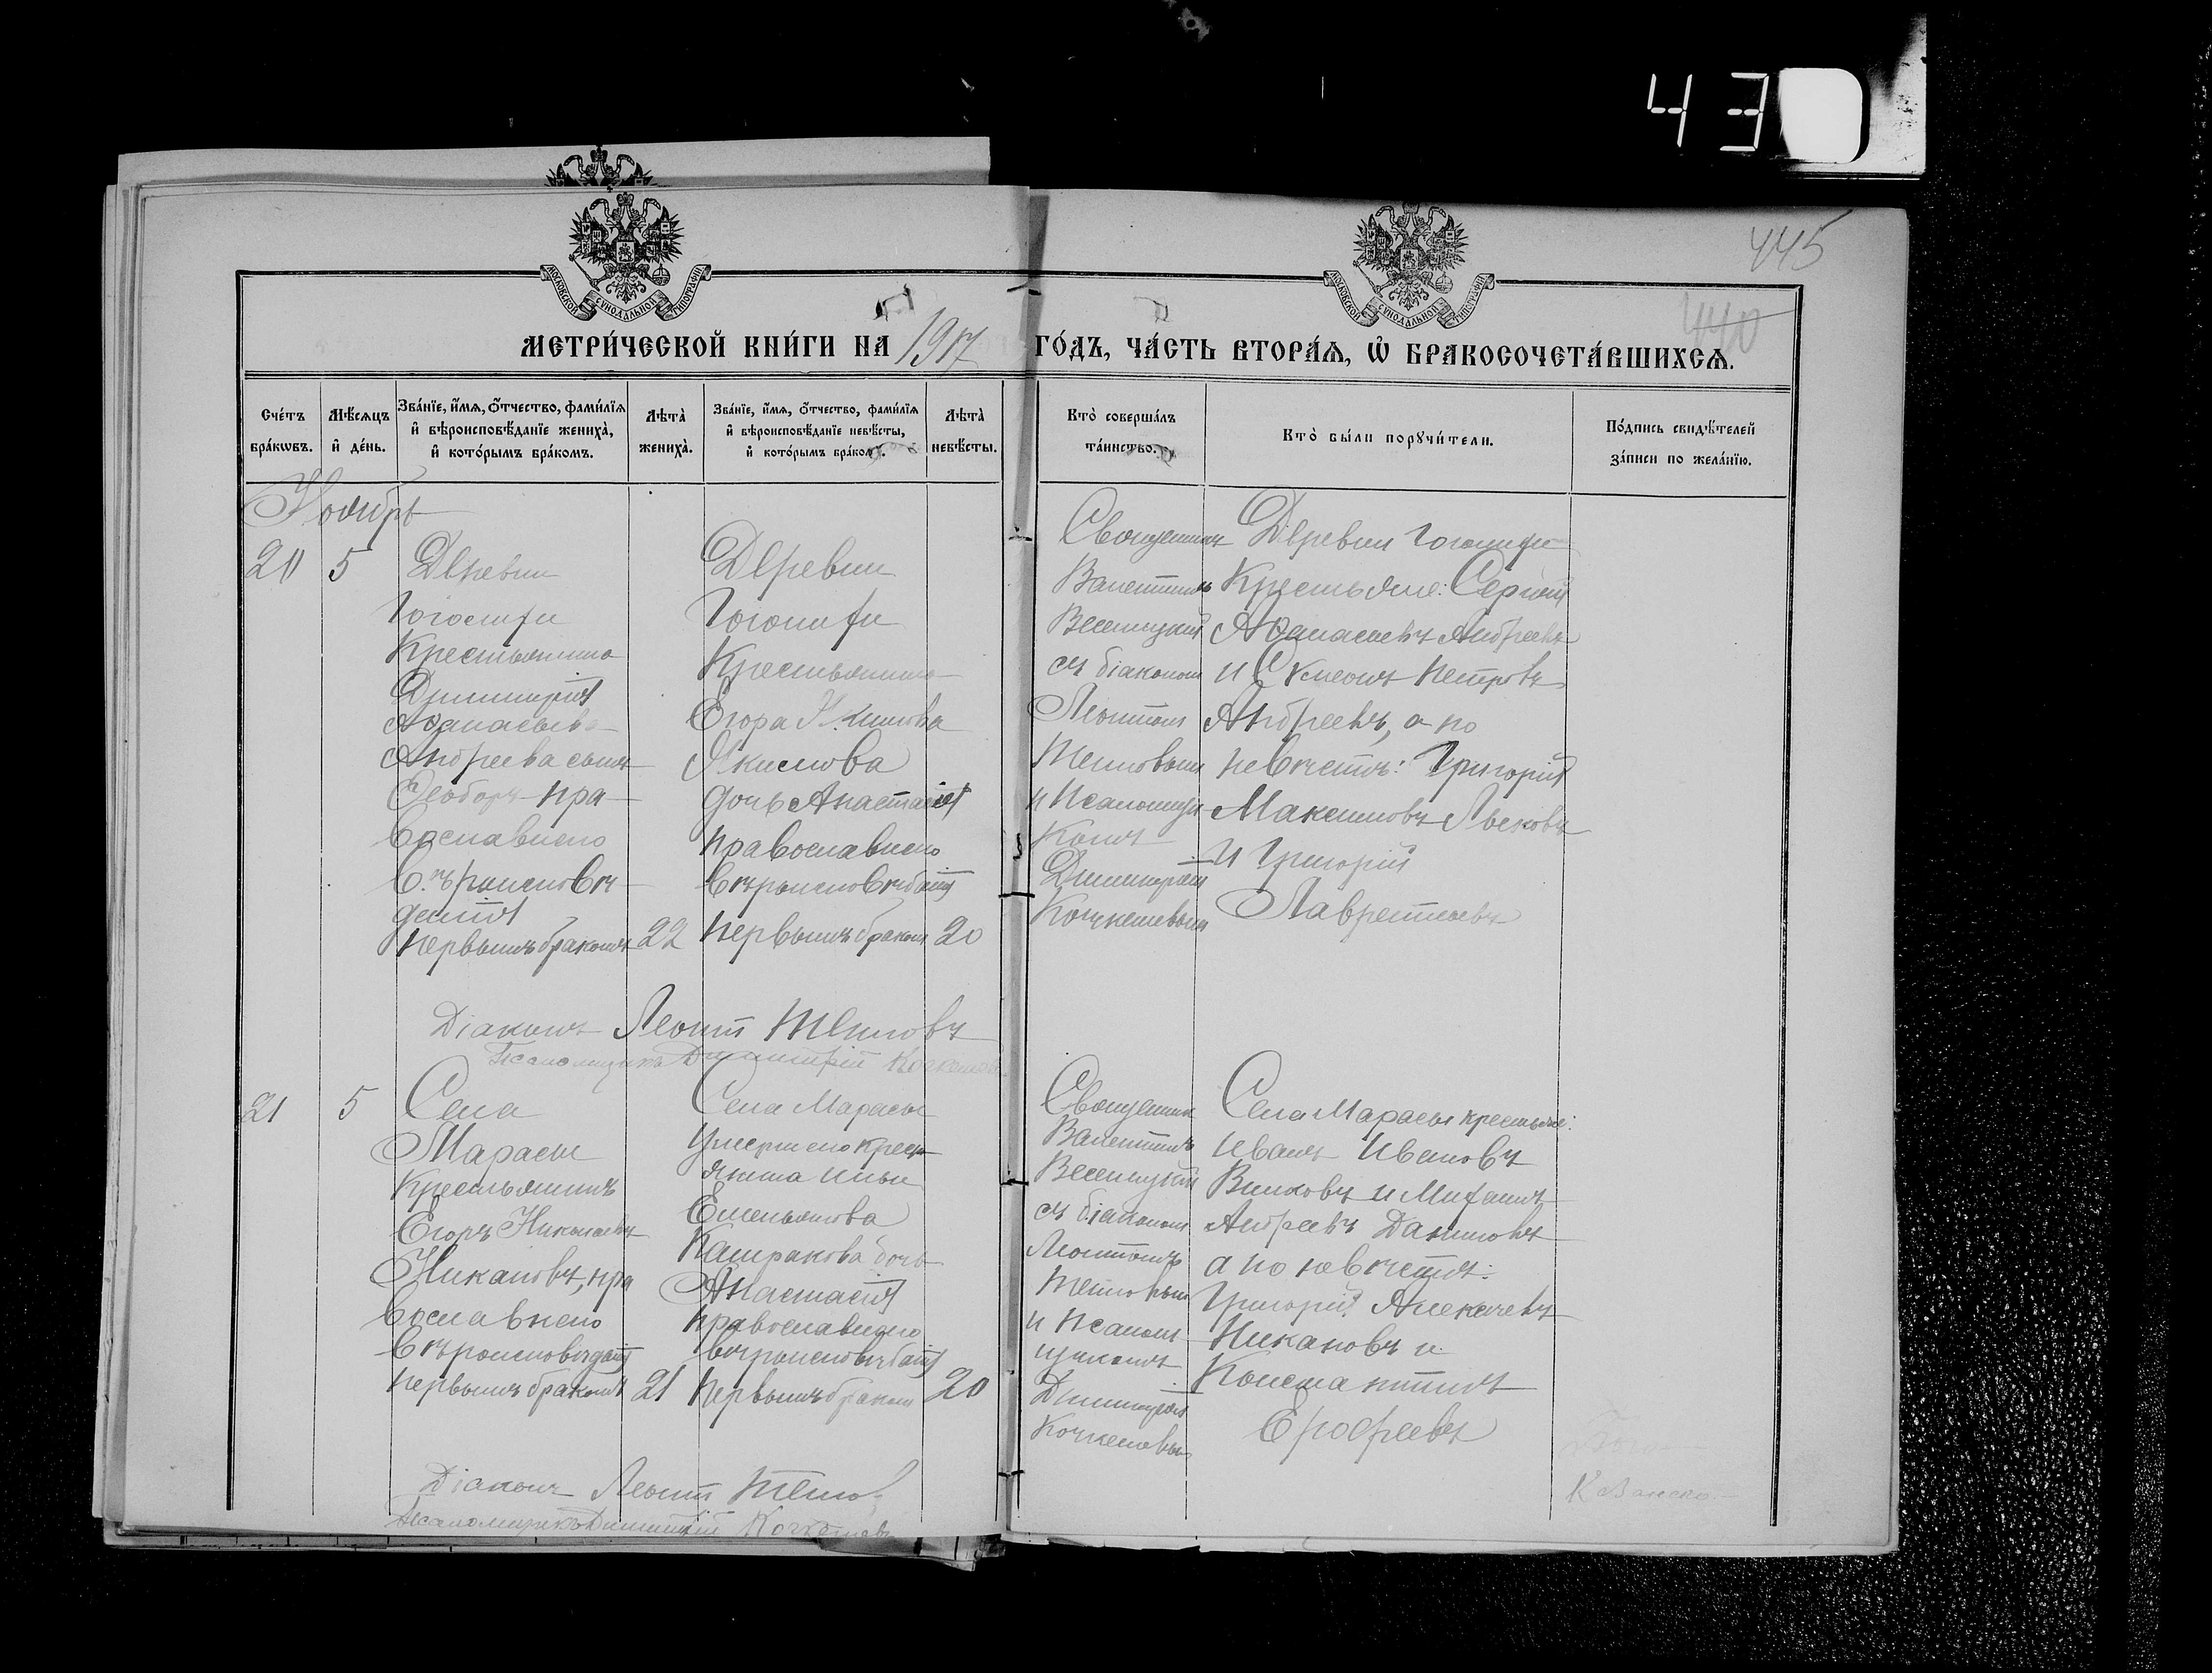 430
445
440
МОСКОВСКОЙ СУНОДАЛЬНОЙ ТИПОГРАФІИ
МОСКОВСКОЙ СУНОДАЛЬНОЙ ТИПОГРАФІИ
МЕТРИ́ЧЕСКОЙ КНИ́ГИ НА 1917 ГО́ДЪ, ЧА́СТЬ ВТОРА́Я, Ѡ БРАКОСОЧЕТА́ВШИХСЯ.
Сче́тъ бра́кѡвъ.
Мѣ́сяцъ и҆ де́нь.
Зва́нїе, и҆́мя, ѻ҆́тчество, фами́лїя и҆ вѣроисповѣ́данїе жениха̀, и҆ кото́рымъ бра́комъ.
Лѣта̀ жениха̀.
Зва́нїе, и҆́мя, ѻ҆́тчество, фами́лїя и҆ вѣроисповѣ́данїе невѣ́сты, и҆ кото́рымъ бра́комъ.
Лѣта̀ невѣ́сты.
Кто̀ соверша́лъ та́инство.
Кто̀ бы́ли порꙋчи́тели.
По́дпись свидѣ́телей за́писи по жела́нїю.
Ноябрь
20
5
Деревни
Крестьянина
Димитрія
Аѳанасьева
Андреева сынъ
Ѳеодоръ пра
вославнаго
вѣроисповѣ
данія
первымъ бракомъ
22
Деревни
Крестьянина
Егора
Якимова
дочь Анастасія
православнаго
вѣроисповѣданія
первымъ бракомъ
20
Священникъ
Валентинъ
Весницкій
съ діакономъ
Леонтіемъ
Теповымъ
и Псаломщи
комъ
Димитріемъ
Кочкешевымъ
Деревни
Крестьяне: Сергій
Аѳанасьевъ Андреевъ
и Симеонъ Петровъ
Андреевъ, а по
невѣстѣ: Григорій
Максимовъ Лысковъ
и Григорій
Лаврентьевъ
Діаконъ Леонтій
Псаломщикъ Димитрій
21
5
Села
Марасы
Крестьянинъ
Егоръ Николаевъ
Никановъ, пра
вославнаго
вѣроисповѣданія
первымъ бракомъ
21
Села Марасы
умершаго кресть
янина Ильи
Емельянова
дочь
Анастасія
православнаго
вѣроисповѣданія
первымъ бракомъ
20
Священникъ
Валентинъ
Весницкій
съ діакономъ
Леонтіемъ
Теповымъ
и Псалом
щикомъ
Димитріемъ
Кочкешевымъ
Села Марасы крестьяне:
Иванъ Ивановъ
Вилковъ и Михаилъ
Андреевъ Даниловъ
а по невѣстѣ:
Григорій Алексеевъ
Никановъ и
Константинъ
Ерофеевъ
Діаконъ Леонтій
Псаломщикъ Димитрій